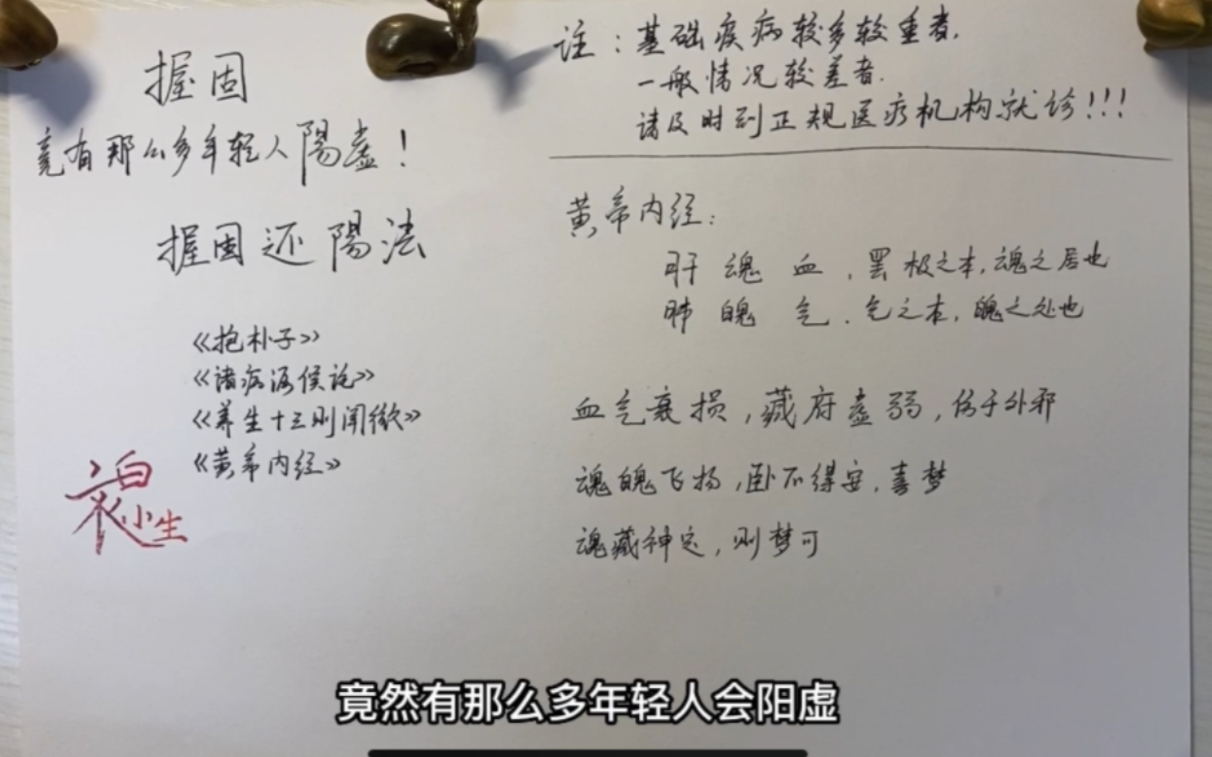 握固
竟有那么多年轻人陽虚！
握固还陽法
《抱朴子》
《诸病源侯论》
《养生十三则阐微》
《黄帝内经》
白衣小生
注：基础疾病较多较重者，
一般情况较差者．
请及时到正规医疗机构就诊！！！
黄帝内经：
肝 魂 血，罢极之本，魂之居也
肺 魄 气．气之本，魄之处也
血气衰损，藏府虚弱，伤于外邪
魂魄飞扬，卧不得安，喜梦
魂藏神定，则梦可
竟然有那么多年轻人会阳虚